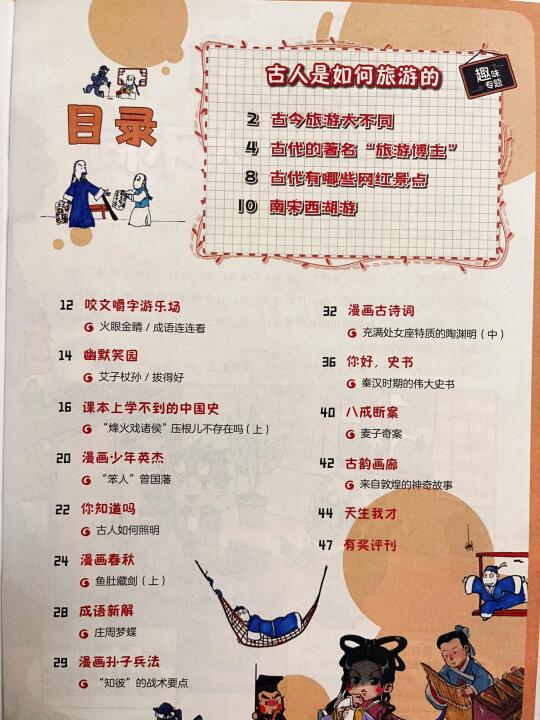 目录
古人是如何旅游的
趣味
专题
2 古今旅游大不同
4 古代的著名“旅游博主”
8 古代有哪些网红景点
10 南宋西湖游
12 咬文嚼字游乐场
火眼金睛 / 成语连连看
14 幽默笑园
艾子杖孙 / 拔得好
16 课本上学不到的中国史
“烽火戏诸侯”压根儿不存在吗（上）
20 漫画少年英杰
“笨人”曾国藩
22 你知道吗
古人如何照明
24 漫画春秋
鱼肚藏剑（上）
28 成语新解
庄周梦蝶
29 漫画孙子兵法
“知彼”的战术要点
32 漫画古诗词
充满处女座特质的陶渊明（中）
36 你好，史书
秦汉时期的伟大史书
40 八戒断案
麦子奇案
42 古韵画廊
来自敦煌的神奇故事
44 天生我才
47 有奖评刊